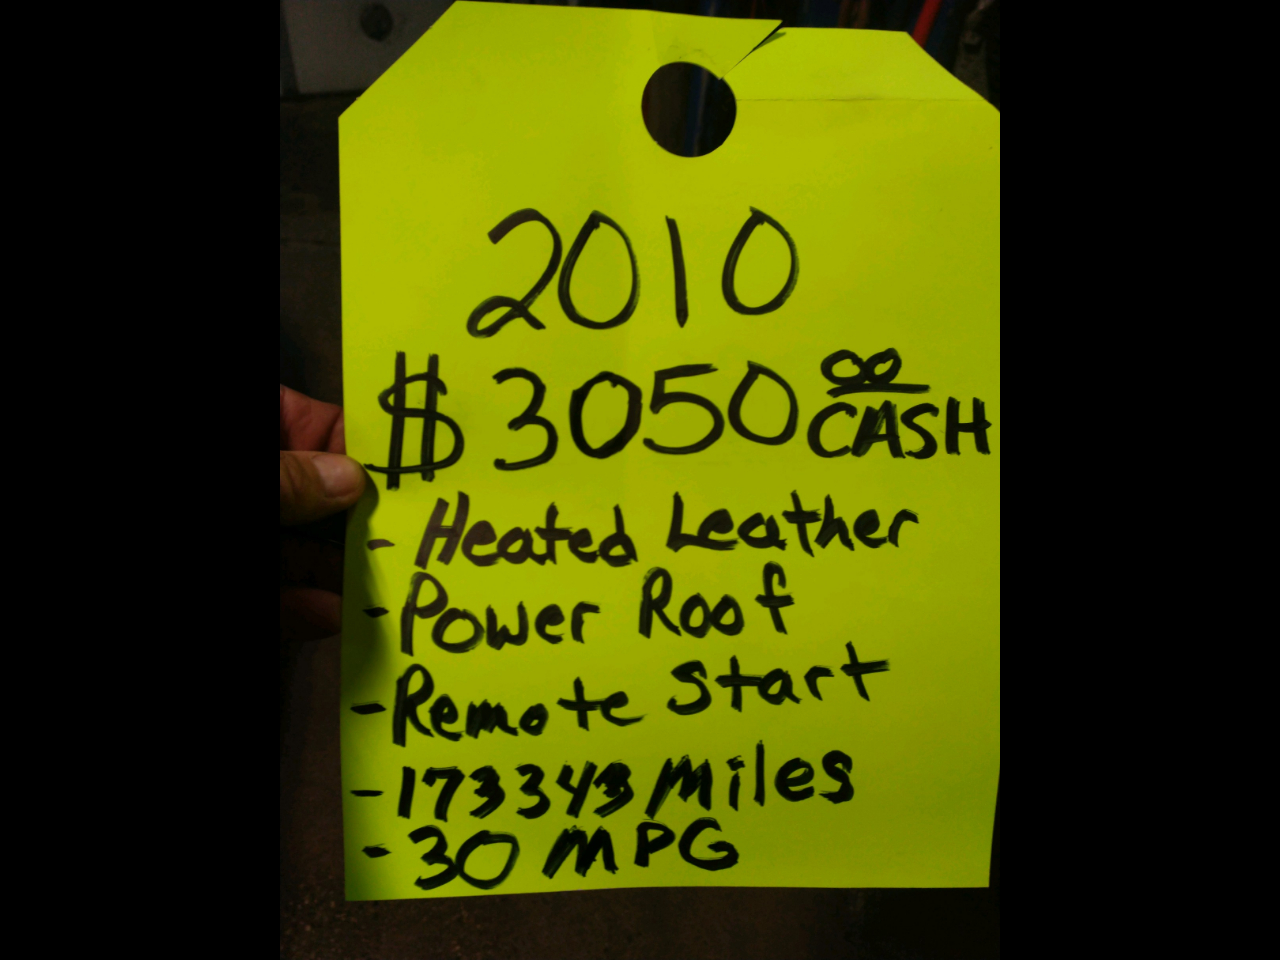 2010
$3050 00 CASH
- Heated Leather
- Power Roof
- Remote Start
- 173343 Miles
- 30 MPG